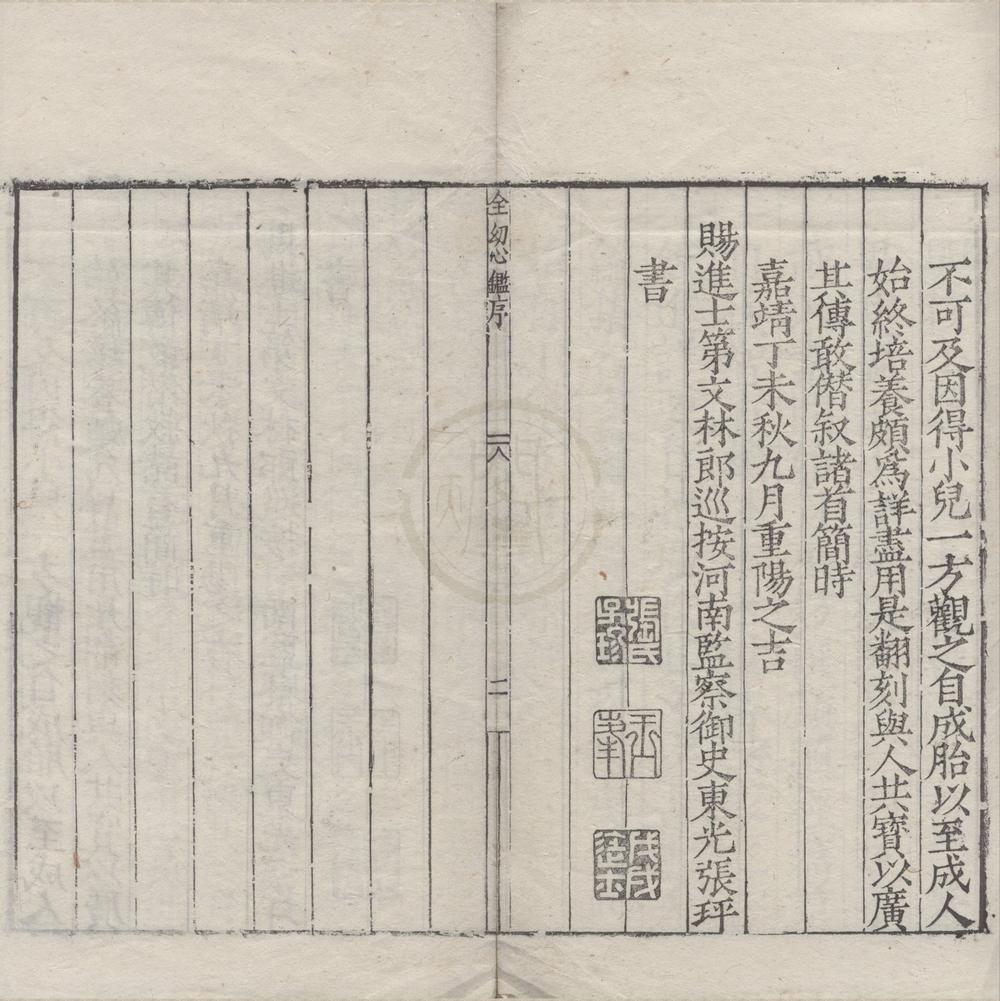 不可及因得小兒一方觀之自成胎以至成人
始終培養頗爲詳盡用是翻刻與人共寶以廣
其傳敢僣叙諸首簡時
嘉靖丁未秋九月重陽之吉
賜進士第文林郎巡按河南監察御史東光張玶
書
張氏
戊戌進士
全幼心鑑序
二